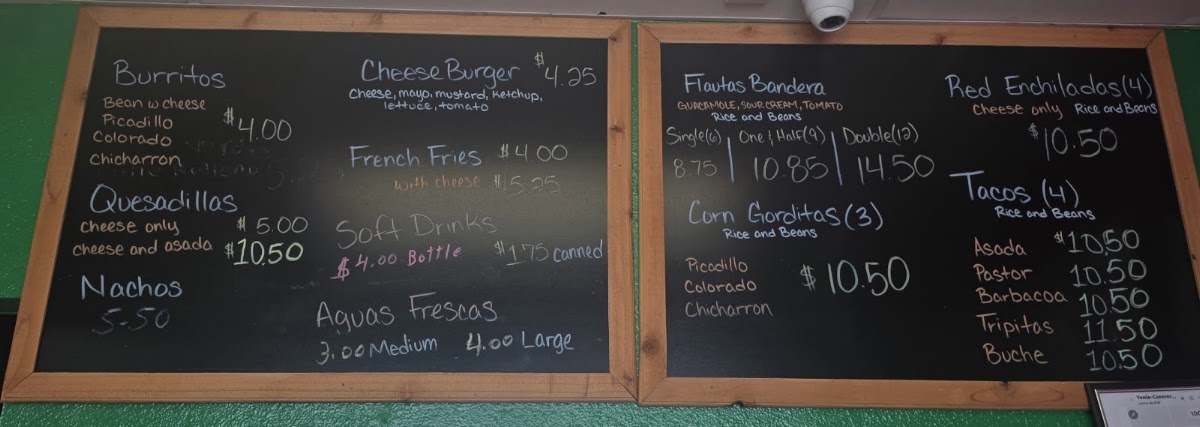 Burritos
Bean w cheese
Picadillo
Colorado
Chicharron
$4.00
Quesadillas
cheese only $5.00
cheese and asada $10.50
Nachos
5.50
Cheese Burger $4.25
Cheese, mayo, mustard, ketchup,
lettuce, tomato
French Fries $4.00
with cheese $5.25
Soft Drinks
$4.00 Bottle $1.75 canned
Aguas Frescas
3.00 Medium 4.00 Large
Flautas Bandera
GUACAMOLE, SOUR CREAM, TOMATO
Rice and Beans
Single(6) One & Half(9) Double(12)
8.75 10.85 14.50
Corn Gorditas (3)
Rice and Beans
Picadillo
Colorado
Chicharron
$10.50
Red Enchiladas (4)
cheese only Rice and Beans
$10.50
Tacos (4)
Rice and Beans
Asada $10.50
Pastor 10.50
Barbacoa 10.50
Tripitas 11.50
Buche 10.50